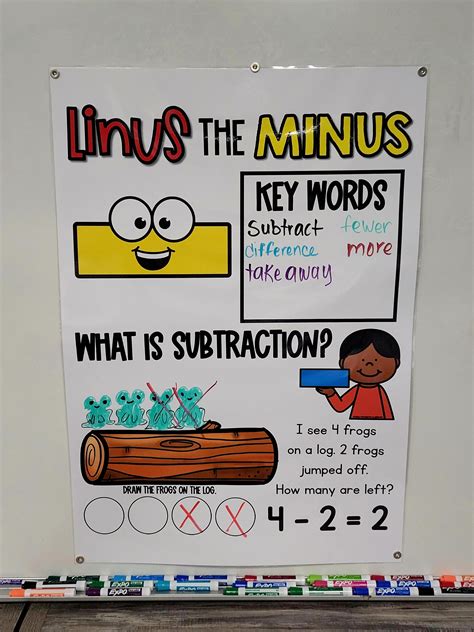 Linus THE MINUS
KEY WORDS
Subtract fewer
difference more
take away
WHAT IS SUBTRACTION?
I see 4 frogs
on a log. 2 frogs
jumped off.
How many are left?
DRAW THE FROGS ON THE LOG.
4 - 2 = 2
EXPO
EXPO
EXPO
EXPO